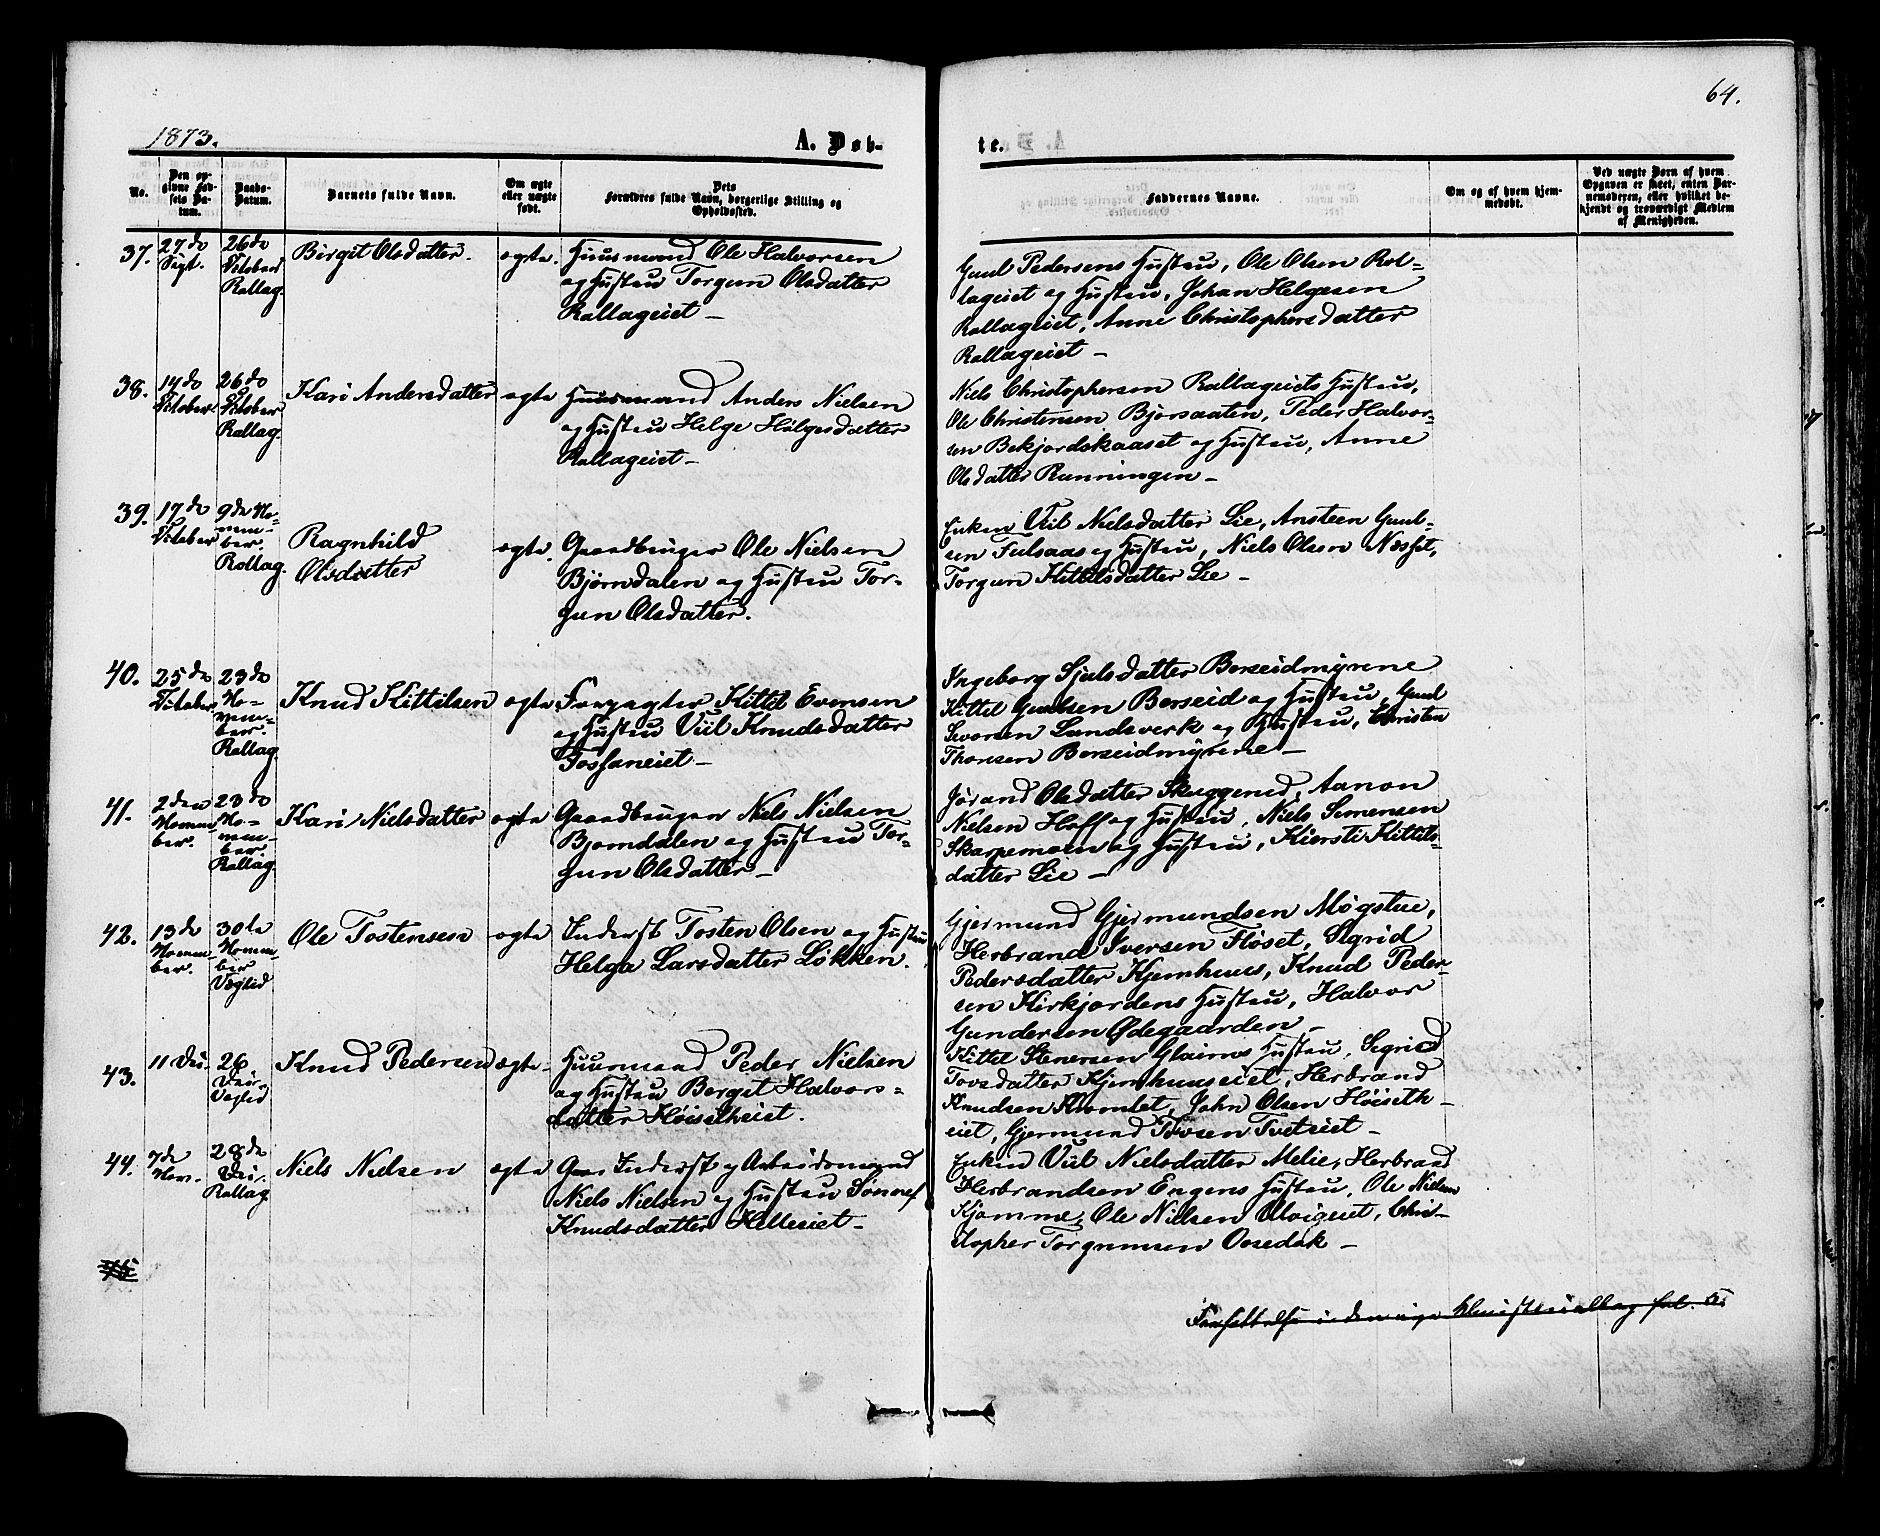 64.
1873.
A. Døb-
te.
No.
Den op-
givne Fød-
sels Da-
tum.
Daabs-
Datum.
Barnets fulde Navn.
Om ægte
eller uægte
født.
Dets
Forældres fulde Navn, borgerlige Stilling og
Opholdssted.
Faddernes Navne.
Om og af hvem hjem-
medøbt.
Ved uægte Børn af hvem
Opgaven er skeet, enten Bar-
nemoderen, eller hvilket be-
kjendt og troværdigt Medlem
af Menigheden.
37.
27de
Sept.
26de
October
Rollag.
Birgit Olsdatter.
ægte.
Huusmand Ole Halvorsen
og Hustru Torgun Olsdatter
Rollageiet –
Gunl Pedersens Hustru, Ole Olsen Rol-
lageiet og Hustru, Johan Helgesen
Rollageiet, Anne Christophersdatter
Rollageiet –
38.
14de
October
26de
October
Rollag.
Kari Andersdatter
ægte
Huusmand Anders Nielsen
og Hustru Helge Helgesdatter
Rollageiet –
Niels Christophersen Rollageiets Hustru,
Ole Christensen Bjørsaaten, Peder Halvor-
sen Bekjordskaaset og Hustru, Anne
Olsdatter Runningen –
39.
17de
October
9de No-
vem-
ber.
Rollag.
Ragnhild
Olsdatter
ægte.
Gaardbruger Ole Nielsen
Bjørndalen og Hustru Tor-
gun Olsdatter.
Enken Viil Nielsdatter Lie, Ansteen Gunl-
sen Fulsaas og Hustru, Niels Olsen Næsset,
Torgun Kittilsdatter Lie –
40.
25de
October
23de
No-
vem-
ber.
Rollag
Knud Kittilsen
ægte
Forpagter Kittil Evensen
og Hustru Viil Knudsdatter
Fosfaneiet –
Ingeborg Sjulsdatter Borseidmyrene
Kittil Gunlsen Borseid og Hustru, Gunl
Sworsen Landsverk og Hustru, Christen
Thorsen Borseidmyrene –
41.
2den
Novem-
ber.
23de
No-
vem-
ber.
Rollag.
Kari Nielsdatter
ægte
Gaardbruger Niels Nielsen
Bjorndalen og Hustru Tor-
gun Olsdatter –
Jørand Olsdatter Skuggerud, Aanon
Nielsen Hoff og Hustru, Niels Simensen
Skarpemoen og Hustru, Kiersti Kittils-
datter Lie –
42.
13de
Novem-
ber.
30te
Novem-
ber
Veglid
Ole Tostensen
ægte
Inderst Tosten Olsen og Hustru
Helga Larsdatter Løkken.
Gjermund Gjermundsen Møgstue,
Herbrand Iversen Fløset, Sigrid
Pedersdatter Kjemhuus, Knud Peder-
sen Kirkjordens Hustru, Halvor
Gundersen Ødegaarden –
43.
11 Dec.
26
Dec.
Veglid
Knud Pedersen
ægte.
Huusmand Peder Nielsen
og Hustru Bergit Halvors-
datter Høisetheiet.
Kittil Stenersen Glaims Hustru, Sigrid
Tovsdatter Kjemhuuseiet, Herbrand
Knudsen Kvomlet, John Olsen Høiseth-
eiet, Gjermund Tovsen Tveteiet –
44.
7de
Nov.
28de
Dec.
Rollag
Niels Nielsen
ægte
Inderst og Arbeidsmand
Niels Nielsen og Hustru Sønnef
Knudsdatter Helleeiet –
Enken Viil Nielsdatter Melie, Herbrand
Herbrandsen Engens Hustru, Ole Nielsen
Kjømme, Ole Nielsen Ulvigeiet, Chri-
stopher Torgrimsen Vosedak –
45
Fortsættelse i den nye Ministerialbog fol.